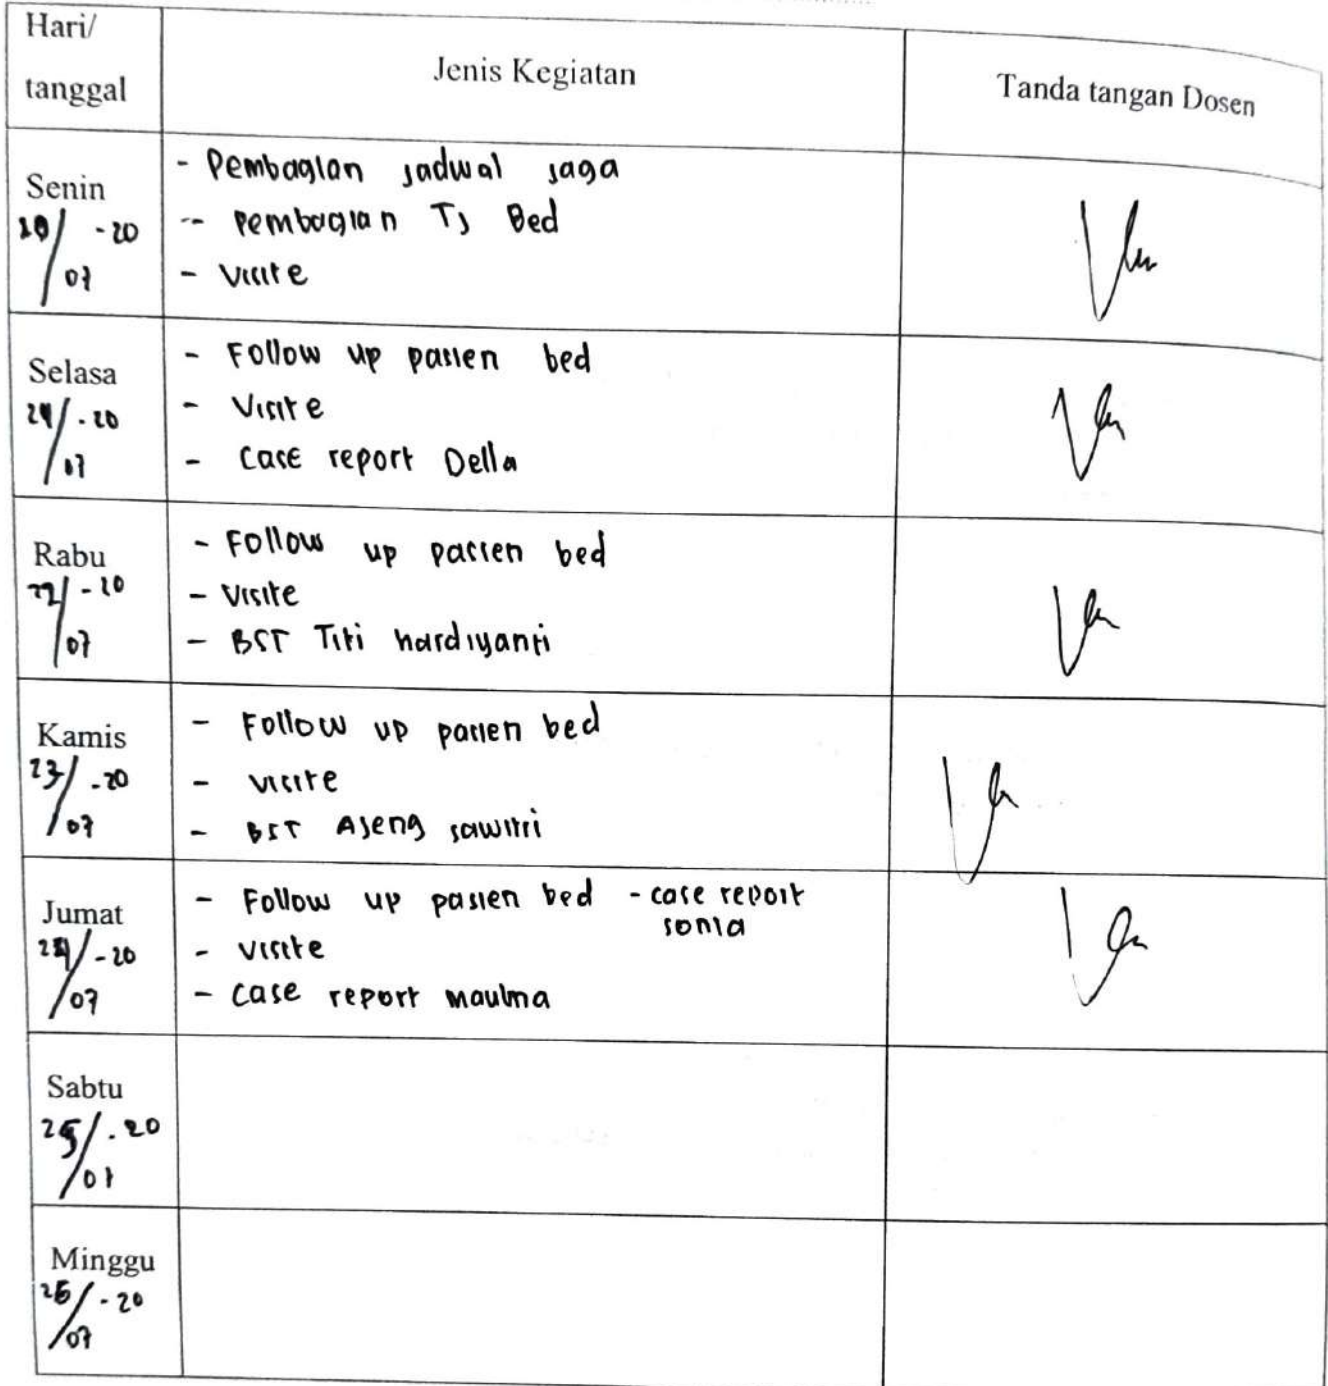 Hari/
tanggal
Jenis Kegiatan
Tanda tangan Dosen
Senin
20/07-20
- Pembagian jadwal jaga
- pembagian Tj Bed
- Visite
Selasa
21/07-20
- Follow up pasien bed
- Visite
- Case report Della
Rabu
22/07-20
- Follow up pasien bed
- Visite
- BST Titi hardiyanti
Kamis
23/07-20
- Follow up pasien bed
- visite
- BST Ajeng sawitri
Jumat
24/07-20
- Follow up pasien bed - case report
sonia
- visite
- case report maulina
Sabtu
25/07-20
Minggu
26/07-20